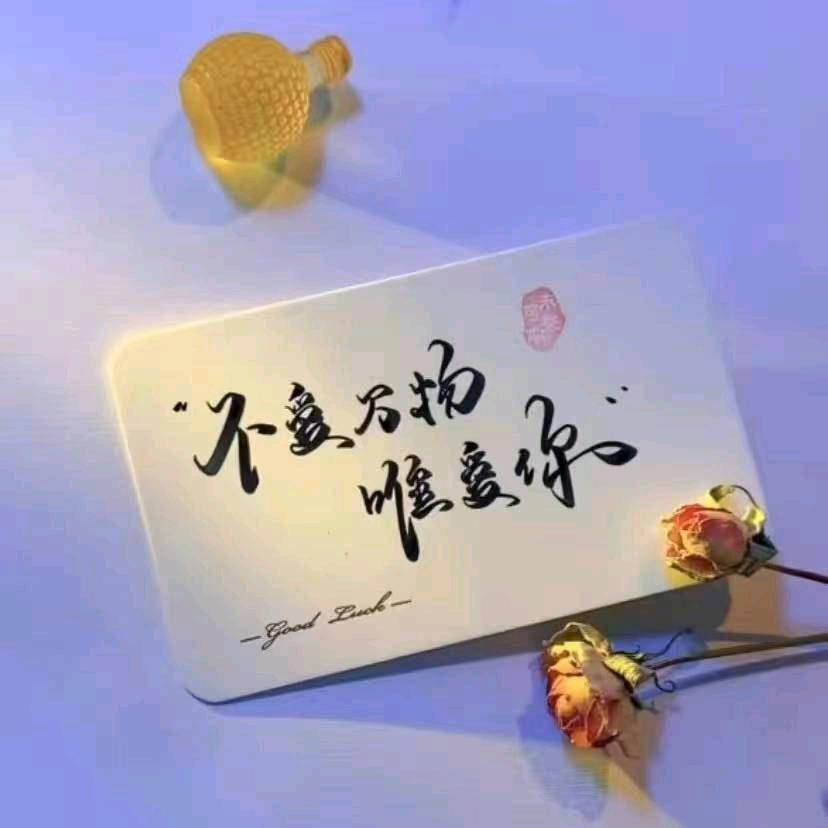 “不爱万物
唯爱你”
—Good Luck—